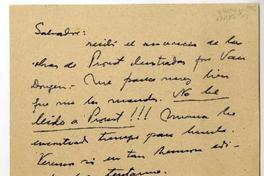 Salvador:
recibí el anuncio de las
obras de Proust ilustradas por Van
Dongen. Me parece muy bien
que me las mande. No he
leído a Proust!!! Nunca he
encontrado tiempo para hacerlo.
Veremos si en tan hermosa edi-